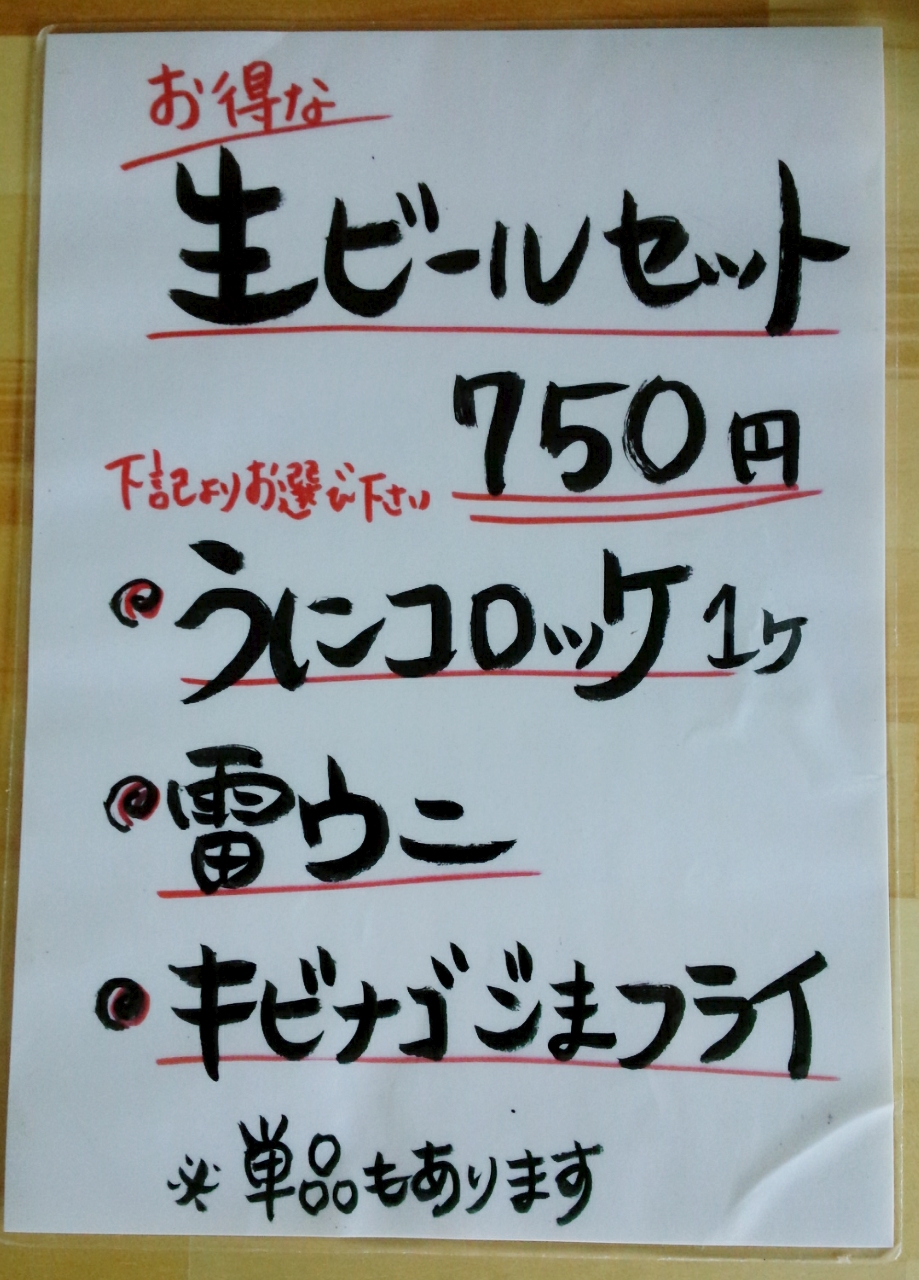 お得な
生ビールセット
750円
下記よりお選び下さい
うにコロッケ 1ケ
雷ウニ
キビナゴごまフライ
※単品もあります